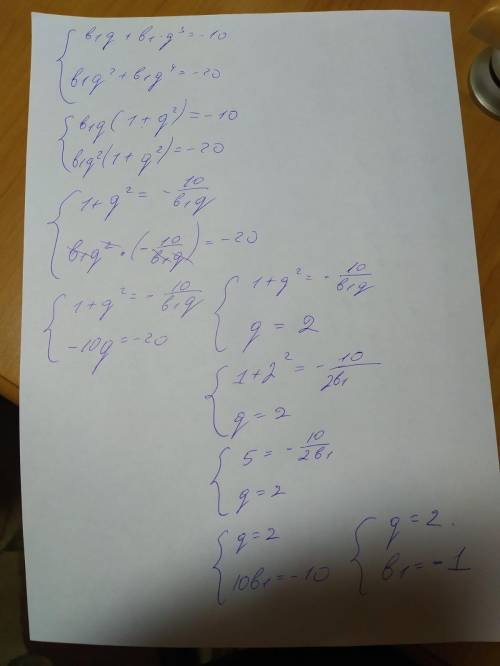 { b₁q + b₁·q³ = -10
b₁q² + b₁q⁴ = -20
{ b₁q(1+q²) = -10
b₁q²(1+q²) = -20
{ 1+q² = -10/b₁q
b₁q² · (-10/b₁q) = -20
{ 1+q² = -10/b₁q
-10q = -20
{ 1+q² = -10/b₁q
q = 2
{ 1+2² = -10/2b₁
q = 2
{ 5 = -10/2b₁
q = 2
{ q = 2
10b₁ = -10
{ q = 2.
b₁ = -1